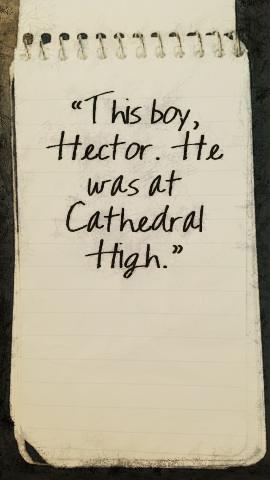 “This boy,
Hector. He
was at
Cathedral
High.”